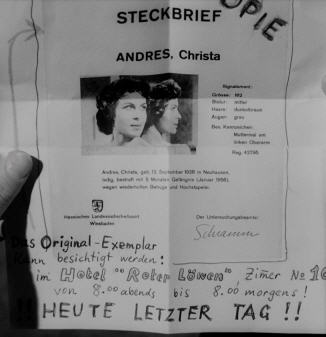 KOPIE
STECKBRIEF
ANDRES, Christa
Signalement:
Grösse: 162
Statur: mittel
Haare: dunkelbraun
Augen: grau
Bes. Kennzeichen:
Muttermal am
linken Oberarm
Reg. 43796
Andres, Christa, geb. 13. September 1936 in Neuhausen,
ledig, bestraft mit 5 Monaten Gefängnis (Januar 1956),
wegen wiederholten Betrugs und Hochstapelei.
Hessisches Landeskriminalamt
Wiesbaden
Der Untersuchungsbeamte:
Das Original-Exemplar
kann besichtigt werden:
im Hotel "Roter Löwen" Zimer No 16
von 8.00 abends bis 8.00 morgens!
!! HEUTE LETZTER TAG !!